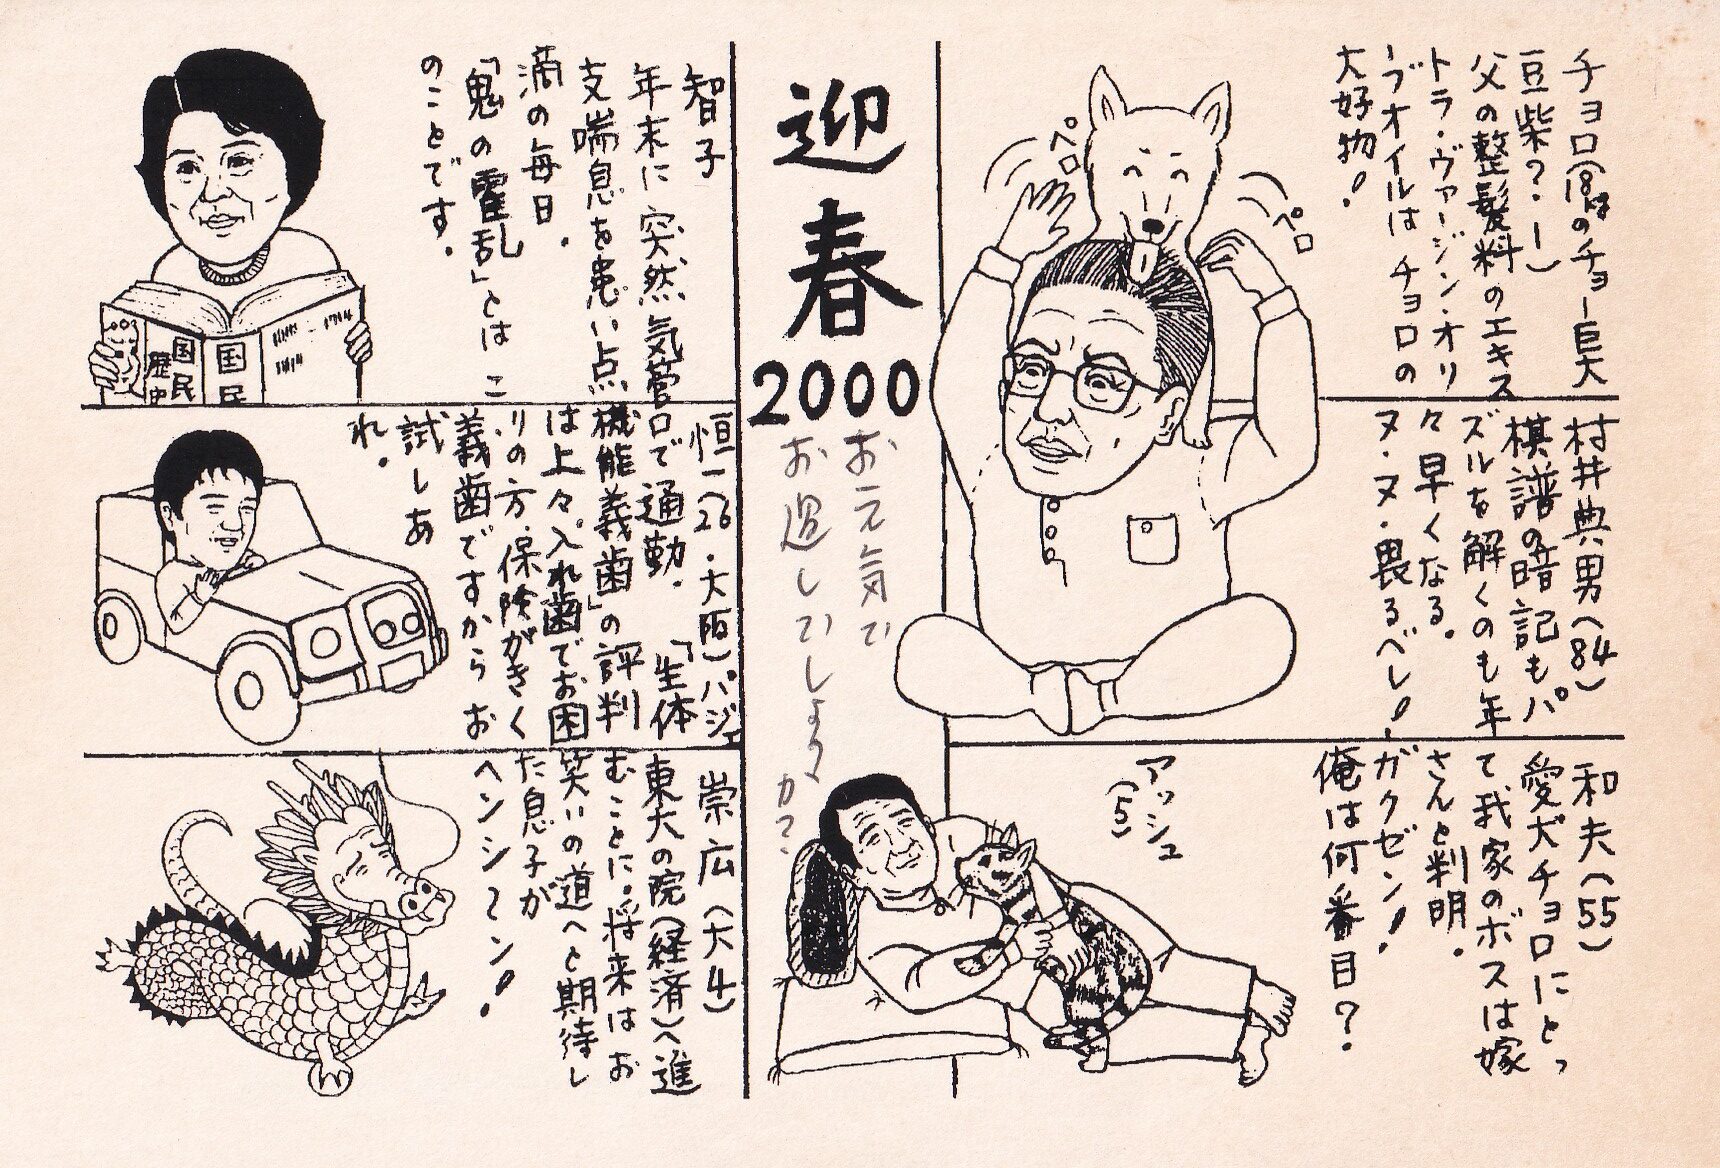 チョロ(宮はのチョー巨大
豆柴?・1)
父の整髪料のエキス
トラ・ヴァージン・オリ
ーブオイルは チョロの
大好物!
ペロ
ペロ
村井典男(84)
棋譜の暗記もパ
ズルを解くのも年
々早くなる。
ヌ・ヌ・畏るべし!
和夫(55)
愛犬チョロにとっ
て我家のボスは嫁
さんと判明。
ガクゼン!
俺は何番目?
アッシュ
(5)
迎春
2000
お元気で
お過しでしょうか?
智子
年末に突然気管
支喘息を患い点
滴の毎日。
「鬼の霍乱」とは こ
のことです。
国民
歴史
国民
恒一(26・大阪)パジェ
ロで通勤。「生体
機能義歯」の評判
は上々。入れ歯でお困
りの方、保険がきく
義歯ですから お
試しあ
れ。
崇広(大4)
東大の院(経済)へ進
むことに。将来はお
笑いの道へと期待し
た息子が
ヘンシ〜ン!